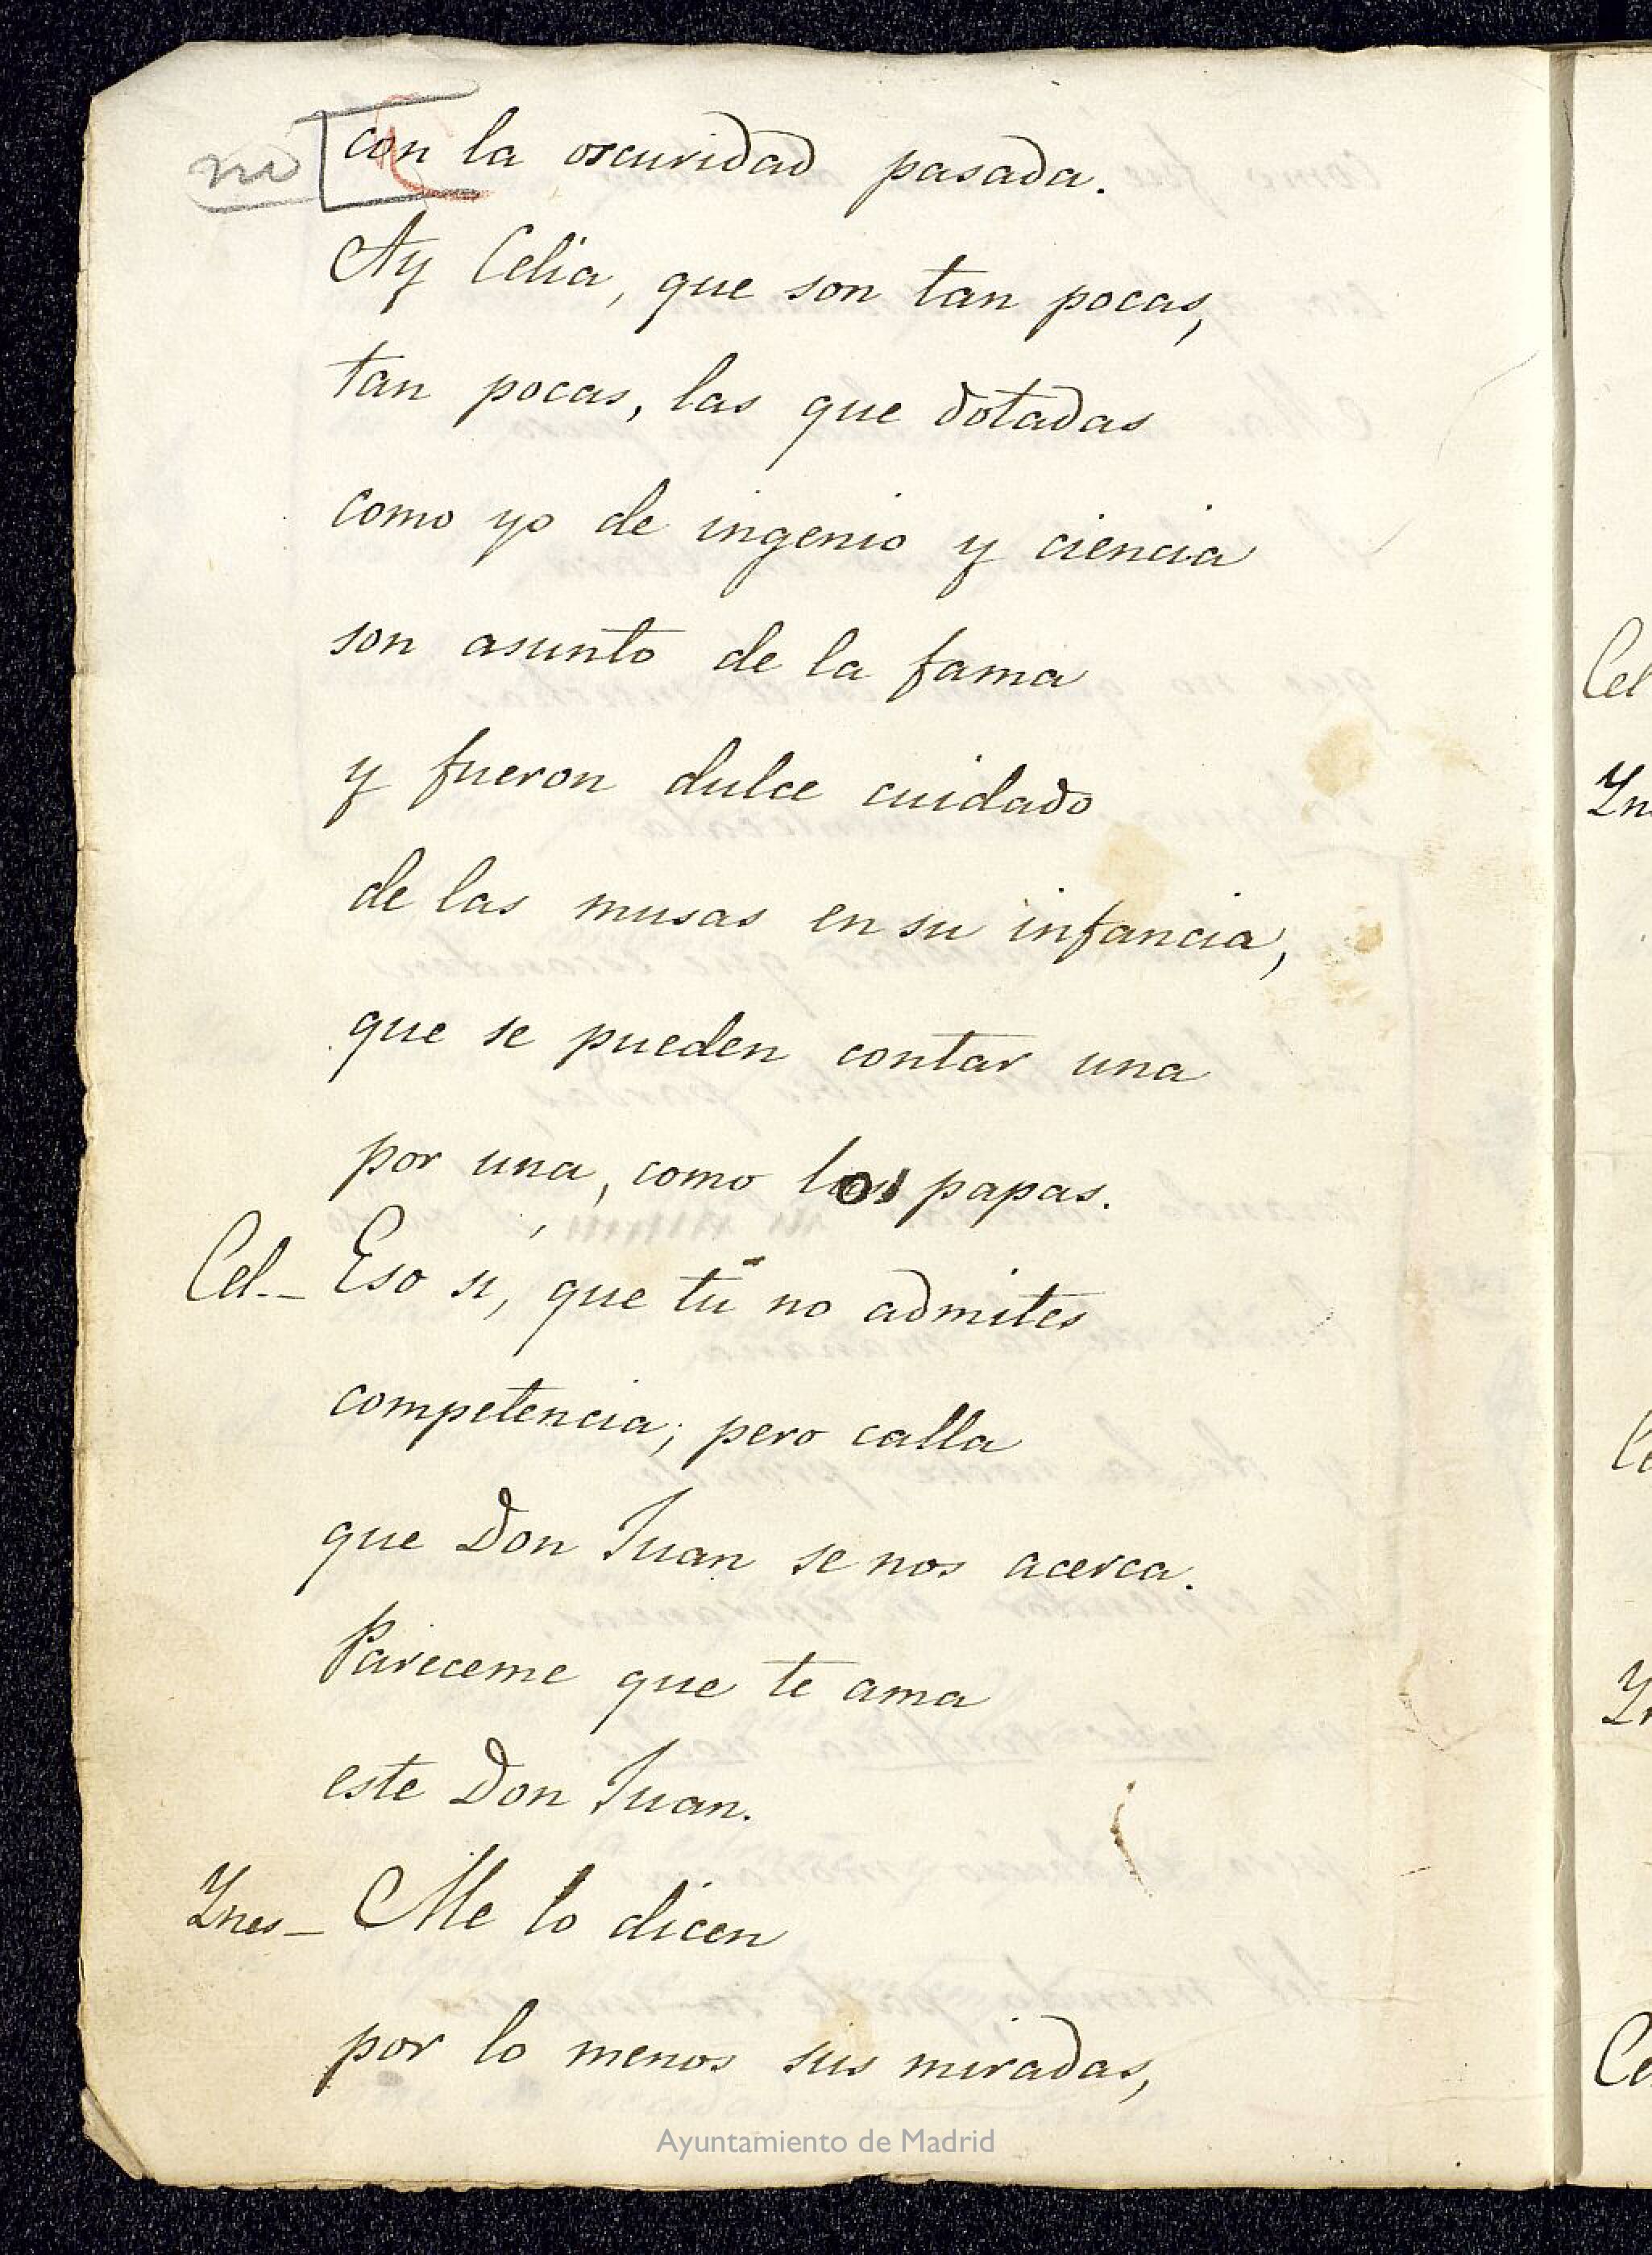 no con la oscuridad pasada.
Ay Celia, que son tan pocas,
tan pocas, las que dotadas
como yo de ingenio y ciencia
son asunto de la fama
y fueron dulce cuidado
de las musas en su infancia,
que se pueden contar una
por una, como los papas.
Cel.- Eso si, que tú no admites
competencia; pero calla
que Don Juan se nos acerca.
Pareceme que te ama
este Don Juan.
Ynes- Me lo dicen
por lo menos sus miradas,
Cel
Yn
Ce
Yn
Ce
Ayuntamiento de Madrid